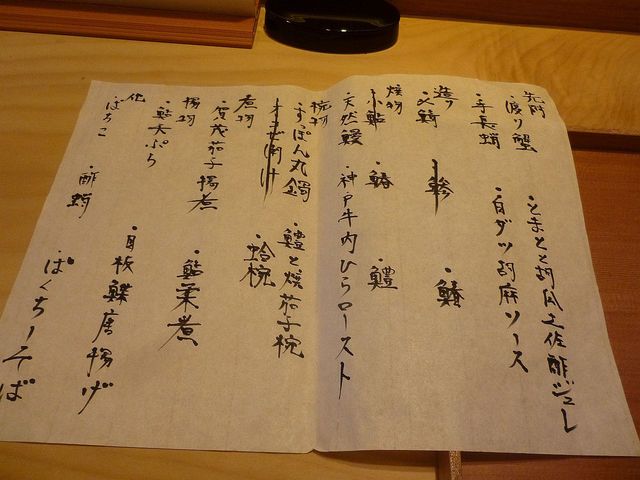 先附
・渡り蟹
・とまとと胡瓜土佐酢ジュレ
・手長蛸
・白ダツ胡麻ソース
造り
焼物
・小鮎
・鰆
・鱧
・天然鰻
・神戸牛内ひらロースト
椀物
・すっぽん丸鍋
・鱧と焼茄子椀
・蛤椀
煮物
・賀茂茄子揚煮
・鮎葉煮
揚物
・鮎天ぷら
・目板鰈唐揚げ
他
・ばちこ
・酢蛸
・ぱくちーそば